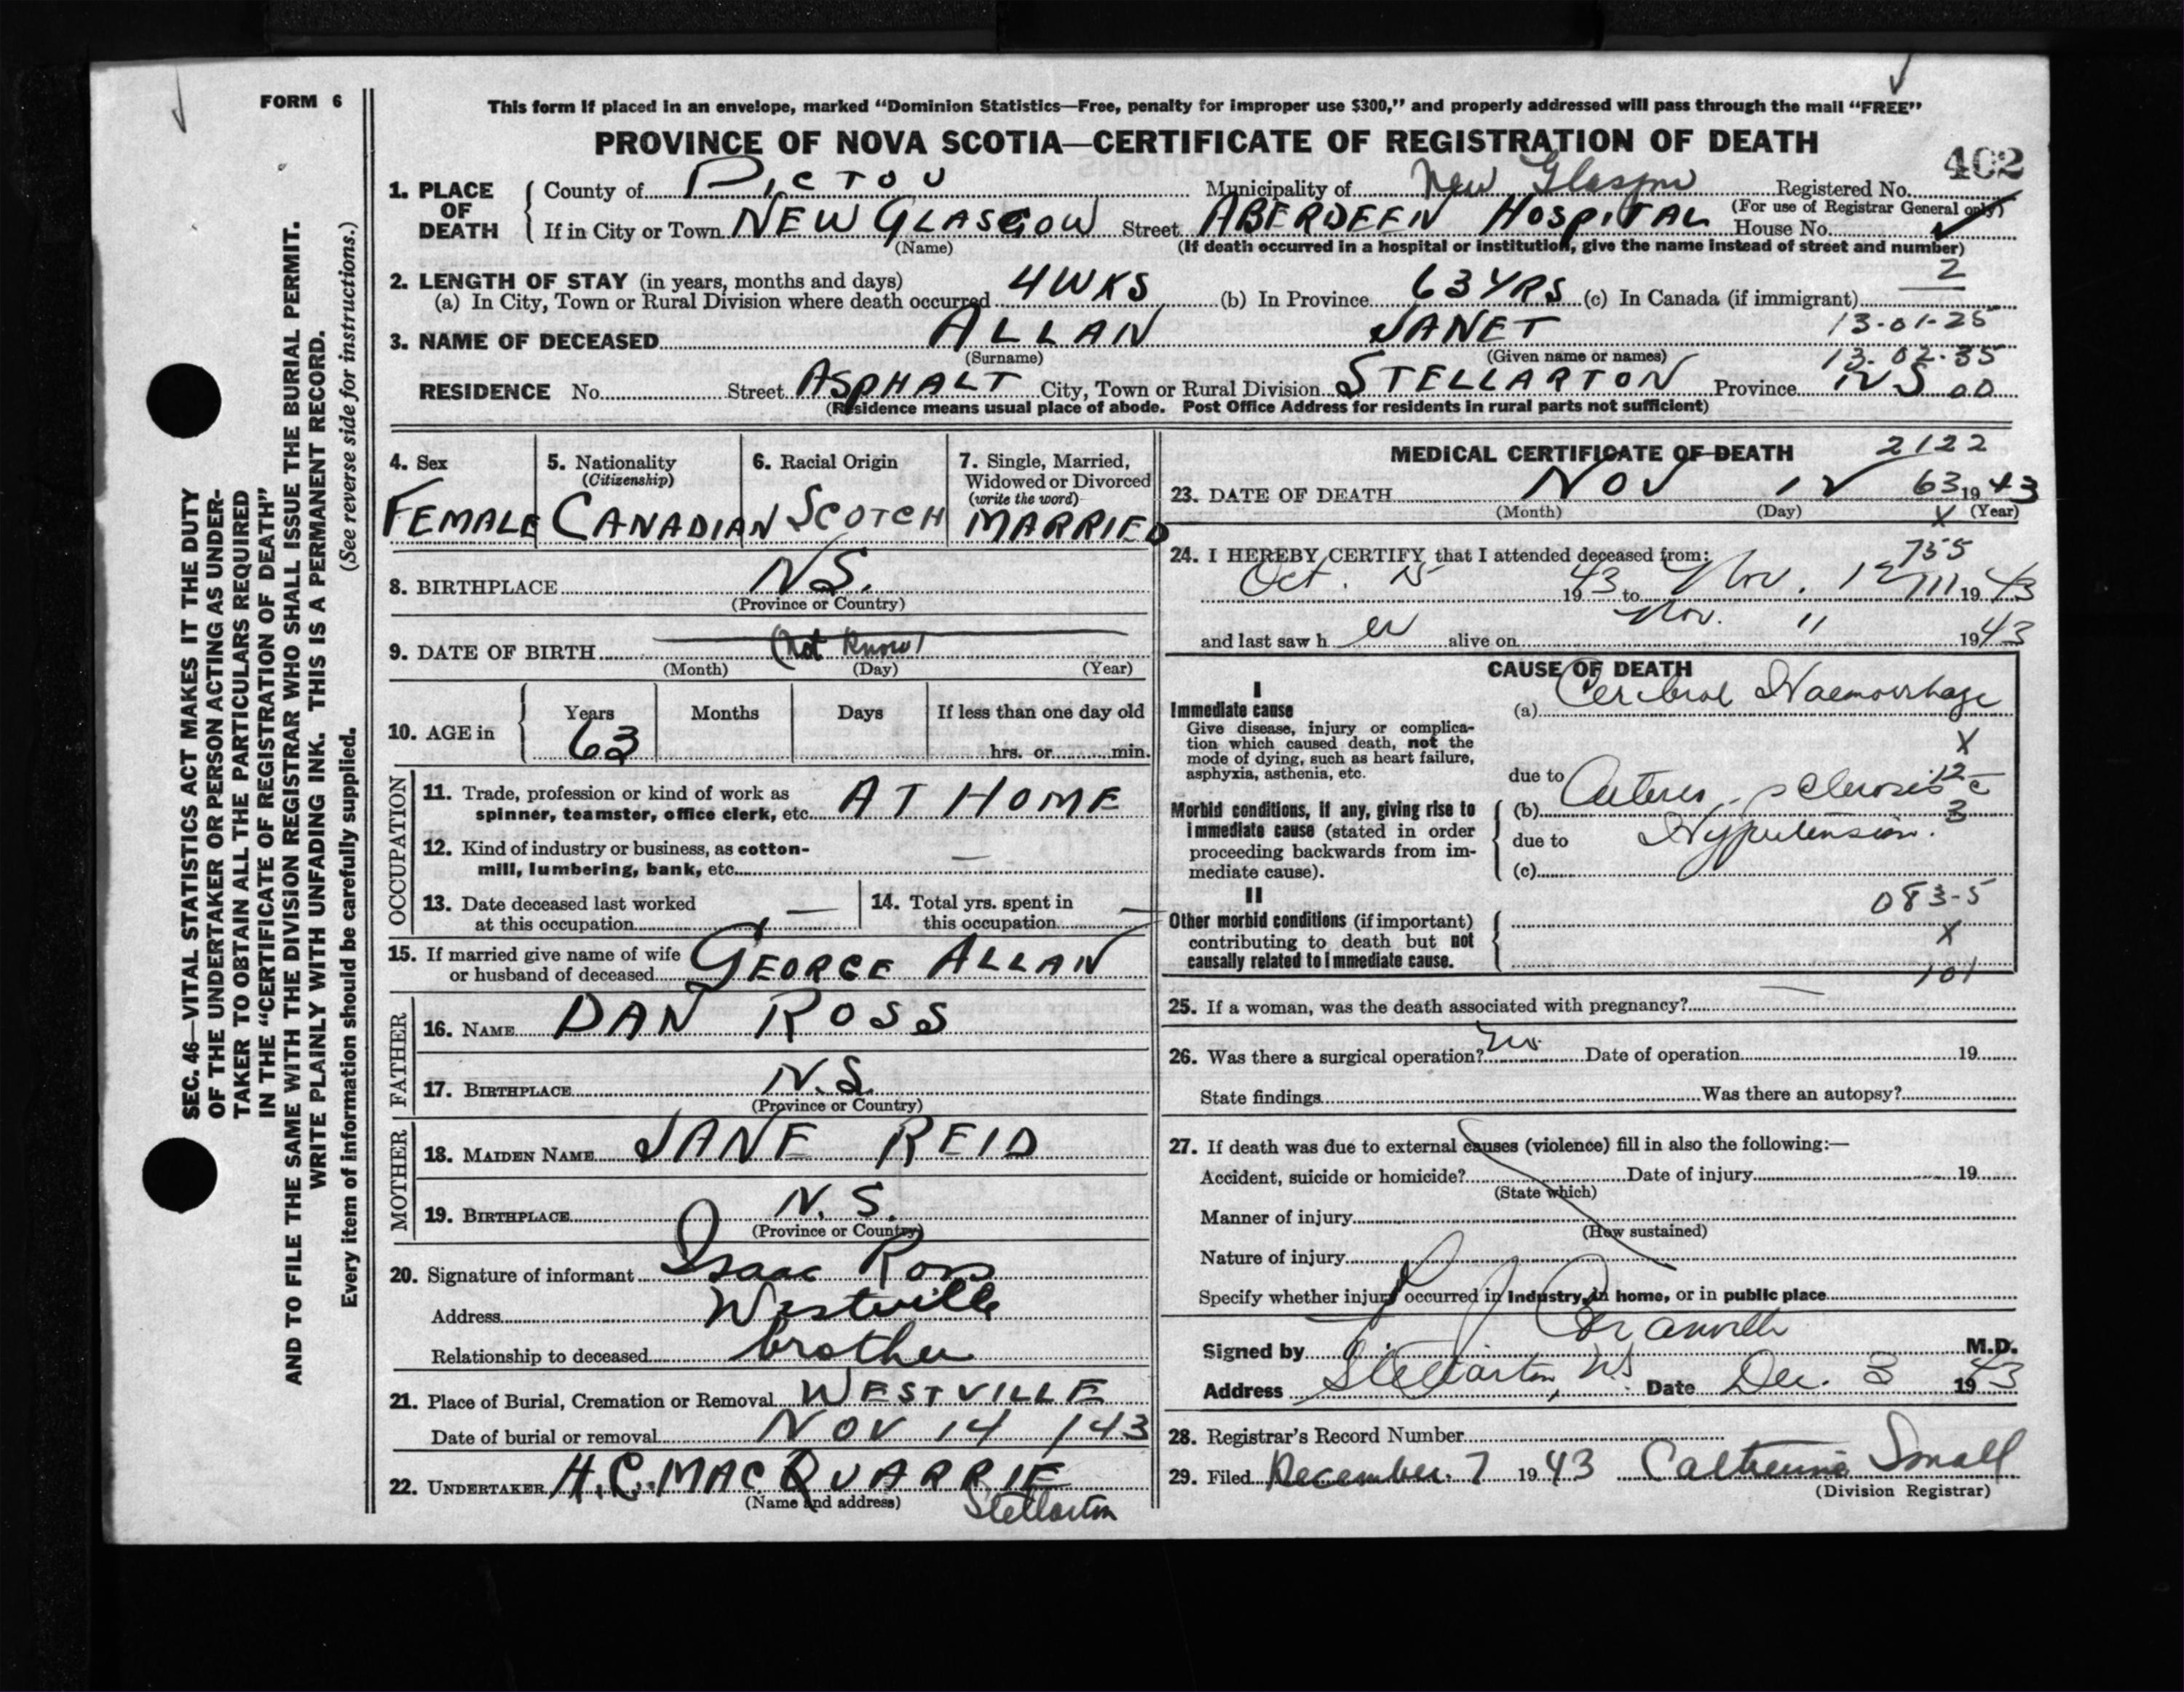 FORM 6
This form if placed in an envelope, marked “Dominion Statistics—Free, penalty for improper use $300,” and properly addressed will pass through the mail “FREE”
PROVINCE OF NOVA SCOTIA—CERTIFICATE OF REGISTRATION OF DEATH
402
1. PLACE OF DEATH { County of PICTOU Municipality of New Glasgow Registered No.
(For use of Registrar General only)
If in City or Town NEW GLASGOW Street ABERDEEN HOSPITAL House No.
(Name) (If death occurred in a hospital or institution, give the name instead of street and number)
2. LENGTH OF STAY (in years, months and days) 2
(a) In City, Town or Rural Division where death occurred 4 WKS (b) In Province 63 YRS (c) In Canada (if immigrant)
13-01-25
3. NAME OF DECEASED ALLAN JANET
(Surname) (Given name or names) 13-02-35
RESIDENCE No. Street ASPHALT City, Town or Rural Division STELLARTON Province NS 00
(Residence means usual place of abode. Post Office Address for residents in rural parts not sufficient)
4. Sex 5. Nationality (Citizenship) 6. Racial Origin 7. Single, Married, Widowed or Divorced (write the word)
FEMALE CANADIAN SCOTCH MARRIED
8. BIRTHPLACE N.S.
(Province or Country)
9. DATE OF BIRTH (Not Know)
(Month) (Day) (Year)
10. AGE in { Years Months Days If less than one day old
63 hrs. or min.
OCCUPATION
11. Trade, profession or kind of work as
spinner, teamster, office clerk, etc. AT HOME
12. Kind of industry or business, as cotton-
mill, lumbering, bank, etc. —
13. Date deceased last worked
at this occupation —
14. Total yrs. spent in
this occupation —
15. If married give name of wife
or husband of deceased GEORGE ALLAN
FATHER
16. NAME DAN ROSS
17. BIRTHPLACE N.S.
(Province or Country)
MOTHER
18. MAIDEN NAME JANE REID
19. BIRTHPLACE N.S.
(Province or Country)
20. Signature of informant Isaac Ross
Address Westville
Relationship to deceased brother
21. Place of Burial, Cremation or Removal WESTVILLE
Date of burial or removal NOV 14 143
22. UNDERTAKER H.C. MACQUARRIE
(Name and address) Stellarton
MEDICAL CERTIFICATE OF DEATH 2122
23. DATE OF DEATH NOV 12 63 1943
(Month) (Day) X (Year)
24. I HEREBY CERTIFY that I attended deceased from: 735
Oct. 15 1943 to Nov. 12 111 1943
and last saw h er alive on Nov. 11 1943
CAUSE OF DEATH
I
Immediate cause
Give disease, injury or complica-
tion which caused death, not the
mode of dying, such as heart failure,
asphyxia, asthenia, etc.
(a) Cerebral Haemorrhage
X
due to
Morbid conditions, if any, giving rise to
immediate cause (stated in order
proceeding backwards from im-
mediate cause).
(b) Arterio-sclerosis 12
3
due to Hypertension.
(c)
II 083-5
Other morbid conditions (if important)
contributing to death but not
causally related to immediate cause.
X
101
25. If a woman, was the death associated with pregnancy? —
26. Was there a surgical operation? No Date of operation 19
State findings Was there an autopsy?
27. If death was due to external causes (violence) fill in also the following:—
Accident, suicide or homicide? Date of injury 19
(State which)
Manner of injury
(How sustained)
Nature of injury
Specify whether injury occurred in Industry, in home, or in public place
Signed by M.D.
Address Stellarton, NS. Date Dec. 3 1943
28. Registrar’s Record Number
29. Filed December 7 1943 Catherine Small
(Division Registrar)
SEC. 46—VITAL STATISTICS ACT MAKES IT THE DUTY
OF THE UNDERTAKER OR PERSON ACTING AS UNDER-
TAKER TO OBTAIN ALL THE PARTICULARS REQUIRED
IN THE “CERTIFICATE OF REGISTRATION OF DEATH”
AND TO FILE THE SAME WITH THE DIVISION REGISTRAR WHO SHALL ISSUE THE BURIAL PERMIT.
WRITE PLAINLY WITH UNFADING INK. THIS IS A PERMANENT RECORD.
Every item of information should be carefully supplied. (See reverse side for instructions.)